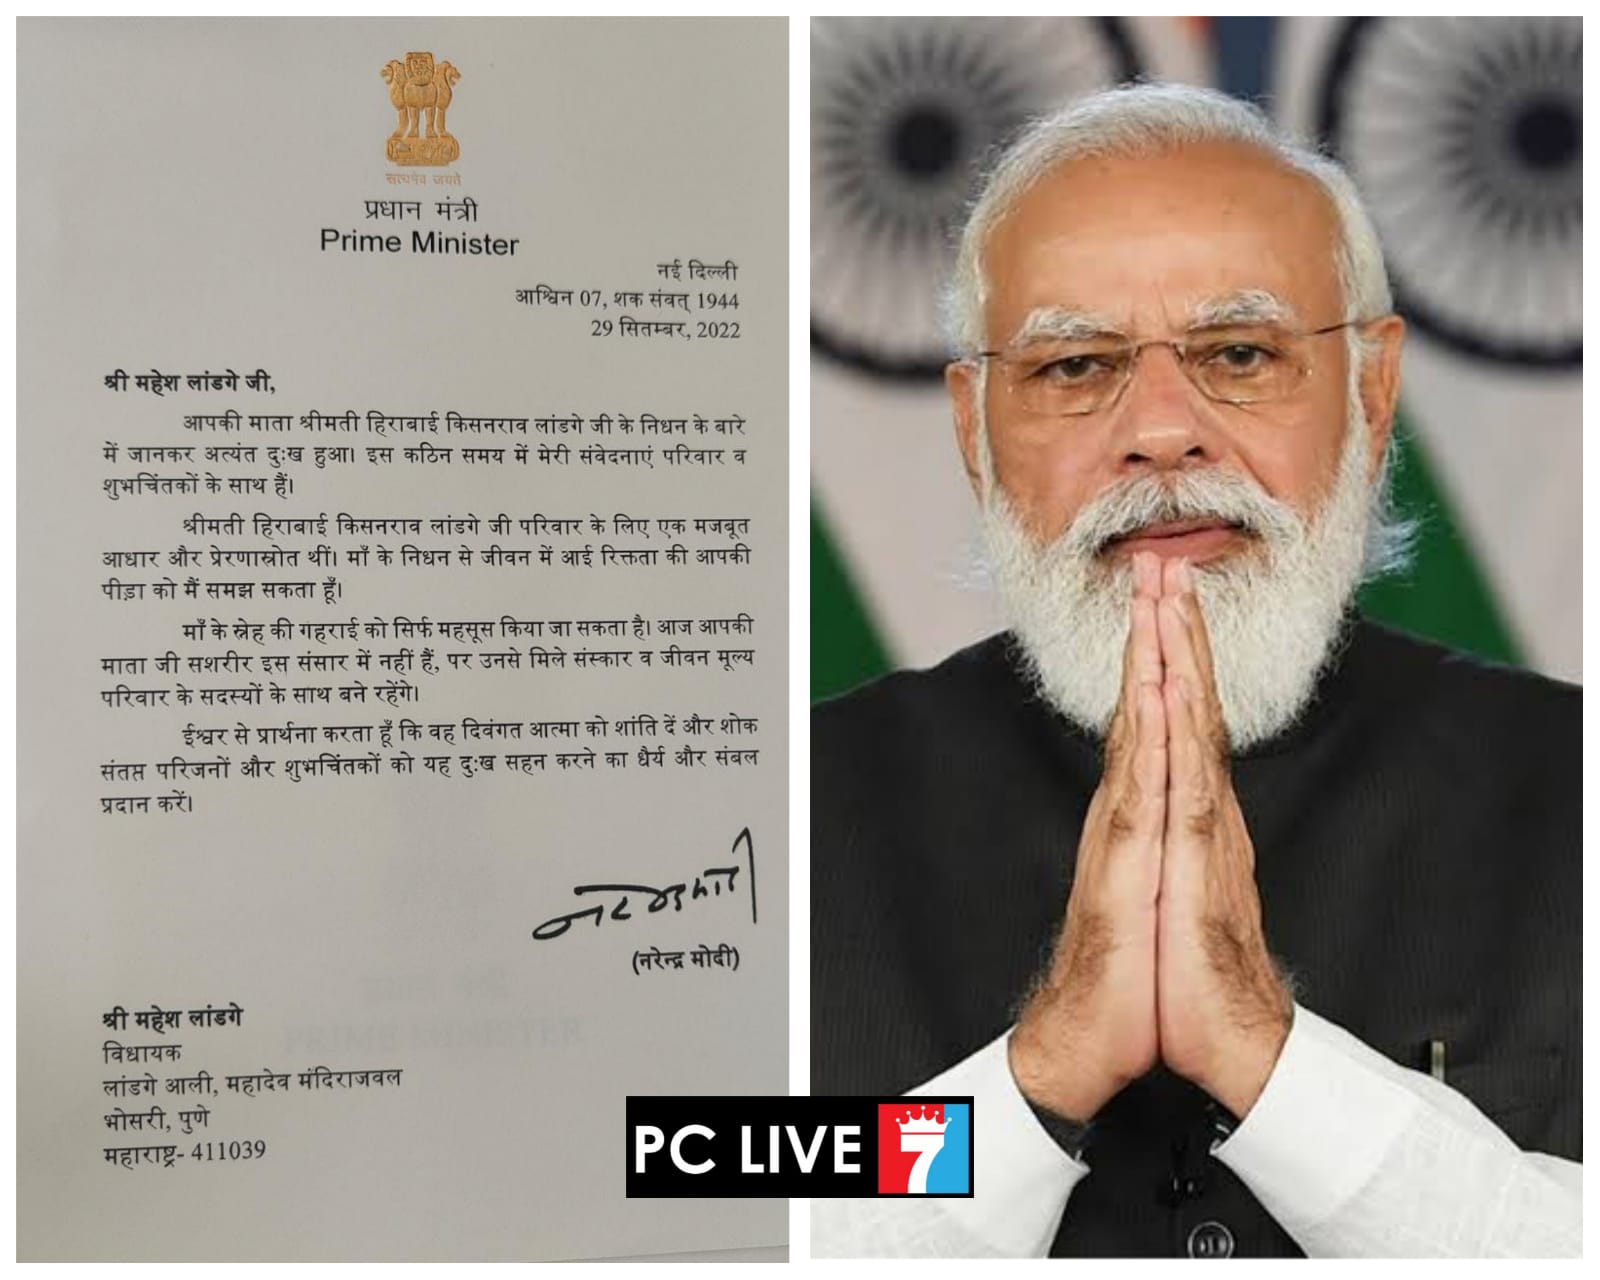 सत्यमेव जयते
प्रधान मंत्री
Prime Minister
नई दिल्ली
आश्विन 07, शक संवत् 1944
29 सितम्बर, 2022
श्री महेश लांडगे जी,
आपकी माता श्रीमती हिराबाई किसनराव लांडगे जी के निधन के बारे
में जानकर अत्यंत दुःख हुआ। इस कठिन समय में मेरी संवेदनाएं परिवार व
शुभचिंतकों के साथ हैं।
श्रीमती हिराबाई किसनराव लांडगे जी परिवार के लिए एक मजबूत
आधार और प्रेरणास्रोत थीं। माँ के निधन से जीवन में आई रिक्तता की आपकी
पीड़ा को मैं समझ सकता हूँ।
माँ के स्नेह की गहराई को सिर्फ महसूस किया जा सकता है। आज आपकी
माता जी सशरीर इस संसार में नहीं हैं, पर उनसे मिले संस्कार व जीवन मूल्य
परिवार के सदस्यों के साथ बने रहेंगे।
ईश्वर से प्रार्थना करता हूँ कि वह दिवंगत आत्मा को शांति दें और शोक
संतप्त परिजनों और शुभचिंतकों को यह दुःख सहन करने का धैर्य और संबल
प्रदान करें।
(नरेन्द्र मोदी)
श्री महेश लांडगे
विधायक
लांडगे आली, महादेव मंदिराजवल
भोसरी, पुणे
महाराष्ट्र- 411039
PC LIVE 7